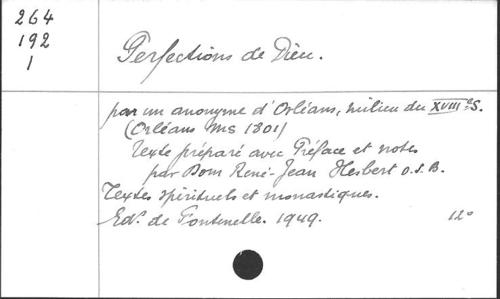 264
192
1
Perfections de Dieu.
par un anonyme d'Orléans, milieu du XVIIIe S.
(Orléans MS 1301)
Texte préparé avec Préface et notes
par Dom René-Jean Hesbert O.S.B.
Textes spirituels et monastiques.
Edn. de Fontenelle. 1949. 12°